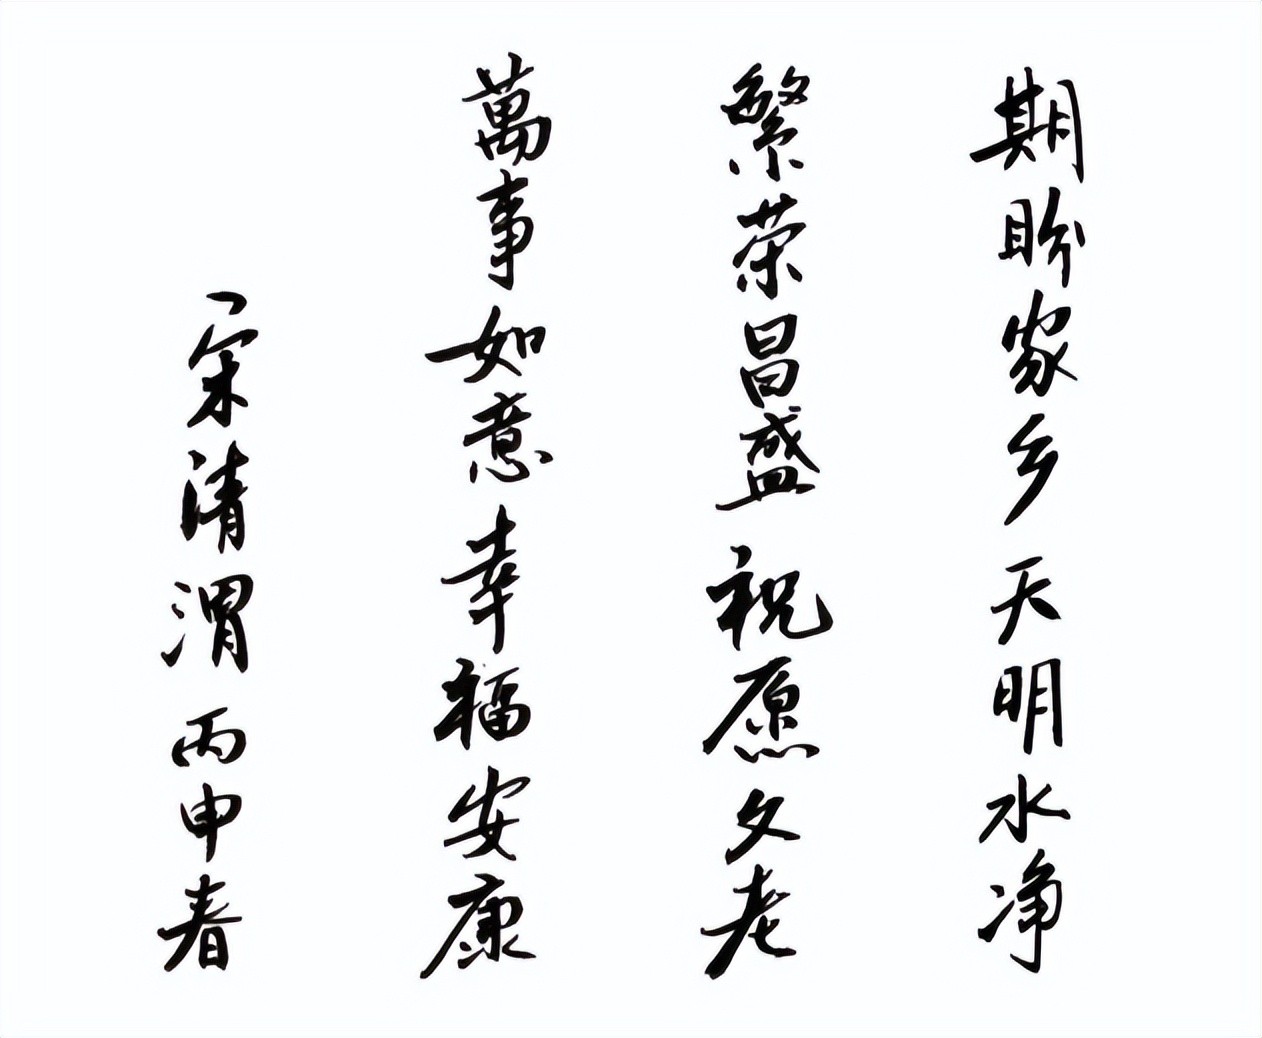 期盼家乡天明水净
繁荣昌盛祝愿父老
萬事如意幸福安康
宋清渭丙申春